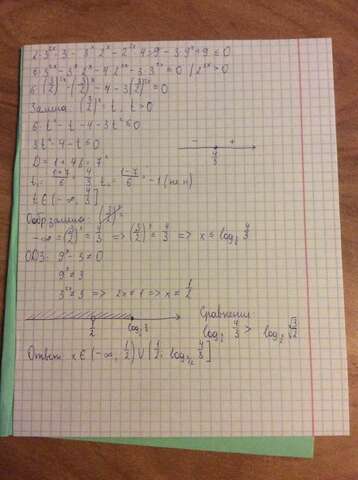 2·3²ˣ·3 - 3ˣ·2ˣ - 2²ˣ·4 - 9 - 3·9ˣ + 9 ≤ 0
6·3²ˣ - 3ˣ·2ˣ - 4·2²ˣ - 3·3²ˣ = 0 | 2²ˣ > 0
6·(3/2)²ˣ - (3/2)ˣ - 4 - 3(3/2)²ˣ = 0
Замена (3/2)ˣ = t, t > 0
6·t² - t - 4 - 3t² ≤ 0
3t² - 4 - t ≤ 0
- +
4/3
D = 1 + 48 = 7²
t₁ = (1+7)/6 = 4/3 t₂ = (1-7)/6 = -1
t ∈ (-∞, 4/3]
Обр. замена: (3/2)ˣ =
-∞ = (3/2)ˣ = 4/3 => (3/2)ˣ = 4/3 => x ≤ log 4/3
ОДЗ: 9ˣ - 3 ≠ 0
9ˣ ≠ 3
3²ˣ ≠ 3 => 2x ≠ 1 => x ≠ 1/2
1/2 log
Сравнение
log 4/3 > log
Ответ: x ∈ (-∞, 1/2) ∪ (1/2; log 4/3]